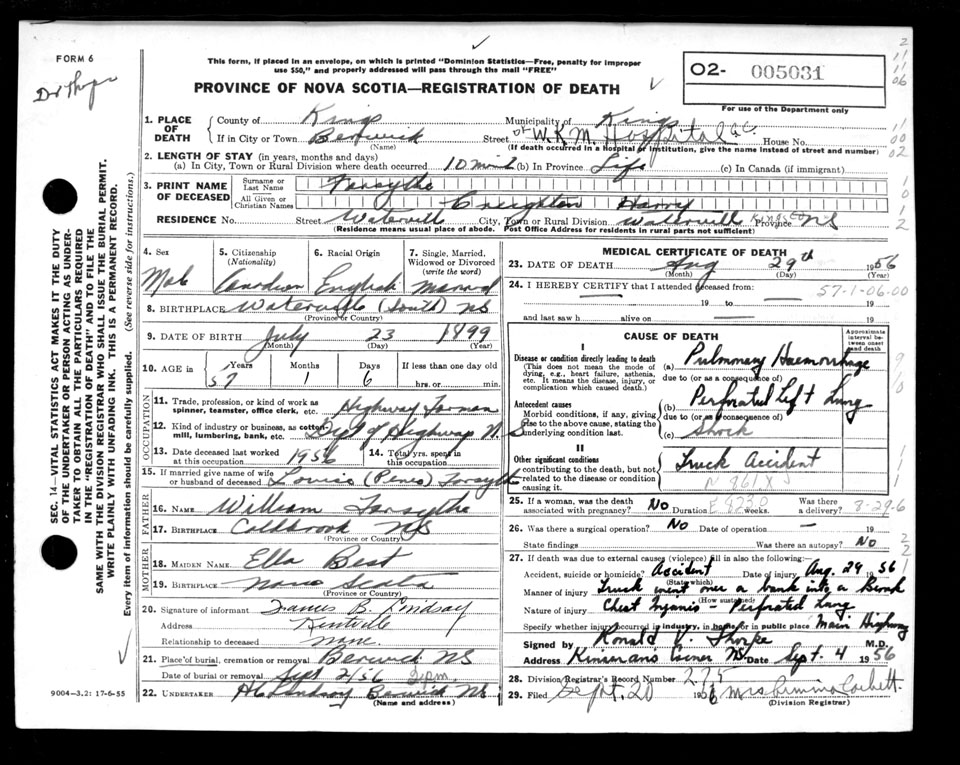 FORM 6
This form, if placed in an envelope, on which is printed "Dominion Statistics—Free, penalty for improper
use $50," and properly addressed will pass through the mail "FREE"
PROVINCE OF NOVA SCOTIA—REGISTRATION OF DEATH
O2- 005031
For use of the Department only
1. PLACE OF DEATH
County of Kings Municipality of Kings
If in City or Town Berwick Street or W.K.M. Hospital House No.
(Name) (If death occurred in a Hospital or Institution, give the name instead of street and number)
2. LENGTH OF STAY (in years, months and days)
(a) In City, Town or Rural Division where death occurred 10 min (b) In Province Life (c) In Canada (if immigrant)
3. PRINT NAME OF DECEASED
Surname or Last Name Forsythe
All Given or Christian Names Creighton Harry
RESIDENCE No. Street Waterville City, Town or Rural Division Waterville Kings Co Province NS
(Residence means usual place of abode. Post Office Address for residents in rural parts not sufficient)
4. Sex Male
5. Citizenship (Nationality) Canadian
6. Racial Origin English
7. Single, Married, Widowed or Divorced (write the word) Married
8. BIRTHPLACE Waterville (South) NS
(Province or Country)
9. DATE OF BIRTH July 23 1899
(Month) (Day) (Year)
10. AGE in Years 57 Months 1 Days 6 If less than one day old hrs. or min.
OCCUPATION
11. Trade, profession, or kind of work as spinner, teamster, office clerk, etc. Highway Forman
12. Kind of industry or business, as cotton mill, lumbering, bank, etc. Dept of Highway N.S
13. Date deceased last worked at this occupation 1956
14. Total yrs. spent in this occupation
15. If married give name of wife or husband of deceased Forsythe
FATHER
16. NAME William Forsythe
17. BIRTHPLACE Coldbrook NS
(Province or Country)
MOTHER
18. MAIDEN NAME Ella Best
19. BIRTHPLACE Nova Scotia
(Province or Country)
20. Signature of informant B. Lindsay
Address Kentville
Relationship to deceased none
21. Place of burial, cremation or removal Berwick NS
Date of burial or removal Sept 2/56 2 pm
22. UNDERTAKER Lindsay Berwick NS
(Name and address)
9004—3.2: 17-6-55
MEDICAL CERTIFICATE OF DEATH
23. DATE OF DEATH Aug 29th 1956
(Month) (Day) (Year)
24. I HEREBY CERTIFY that I attended deceased from:
57-1-06.00
19 to 19
and last saw h alive on 19
CAUSE OF DEATH
Approximate interval between onset and death
I
Disease or condition directly leading to death
(This does not mean the mode of dying, e.g., heart failure, asthenia, etc. It means the disease, injury, or complication which caused death.)
(a) Pulmonary Haemorrhage
due to (or as a consequence of)
Antecedent causes
Morbid conditions, if any, giving rise to the above cause, stating the underlying condition last.
(b) Perforated Left Lung
due to (or as a consequence of)
(c) Shock
II
Other significant conditions
contributing to the death, but not related to the disease or condition causing it.
Truck Accident
25. If a woman, was the death associated with pregnancy? No Duration weeks. Was there a delivery?
8-29-6
26. Was there a surgical operation? No Date of operation — 19
State findings Was there an autopsy? No
27. If death was due to external causes (violence) fill in also the following:—
Accident, suicide or homicide? Accident Date of injury Aug. 29 1956
(State which)
Manner of injury Truck went over a bank into a Brook
(How sustained)
Nature of injury Chest Injuries - Perforated Lung
Specify whether injury occurred in industry, in home or in public place Main Highway
Signed by Ronald V. Thorpe M.D.
Address Kinsman's Corner NS Date Sept. 4 1956
28. Division Registrar's Record Number 275
29. Filed Sept. 20 1956 Mrs Corbett.
(Division Registrar)
SEC. 14—VITAL STATISTICS ACT MAKES IT THE DUTY
OF THE UNDERTAKER OR PERSON ACTING AS UNDER-
TAKER TO OBTAIN ALL THE PARTICULARS REQUIRED
IN THE "REGISTRATION OF DEATH" AND TO FILE THE
SAME WITH THE DIVISION REGISTRAR WHO SHALL ISSUE THE BURIAL PERMIT.
WRITE PLAINLY WITH UNFADING INK. THIS IS A PERMANENT RECORD.
Every item of information should be carefully supplied. (See reverse side for instructions.)